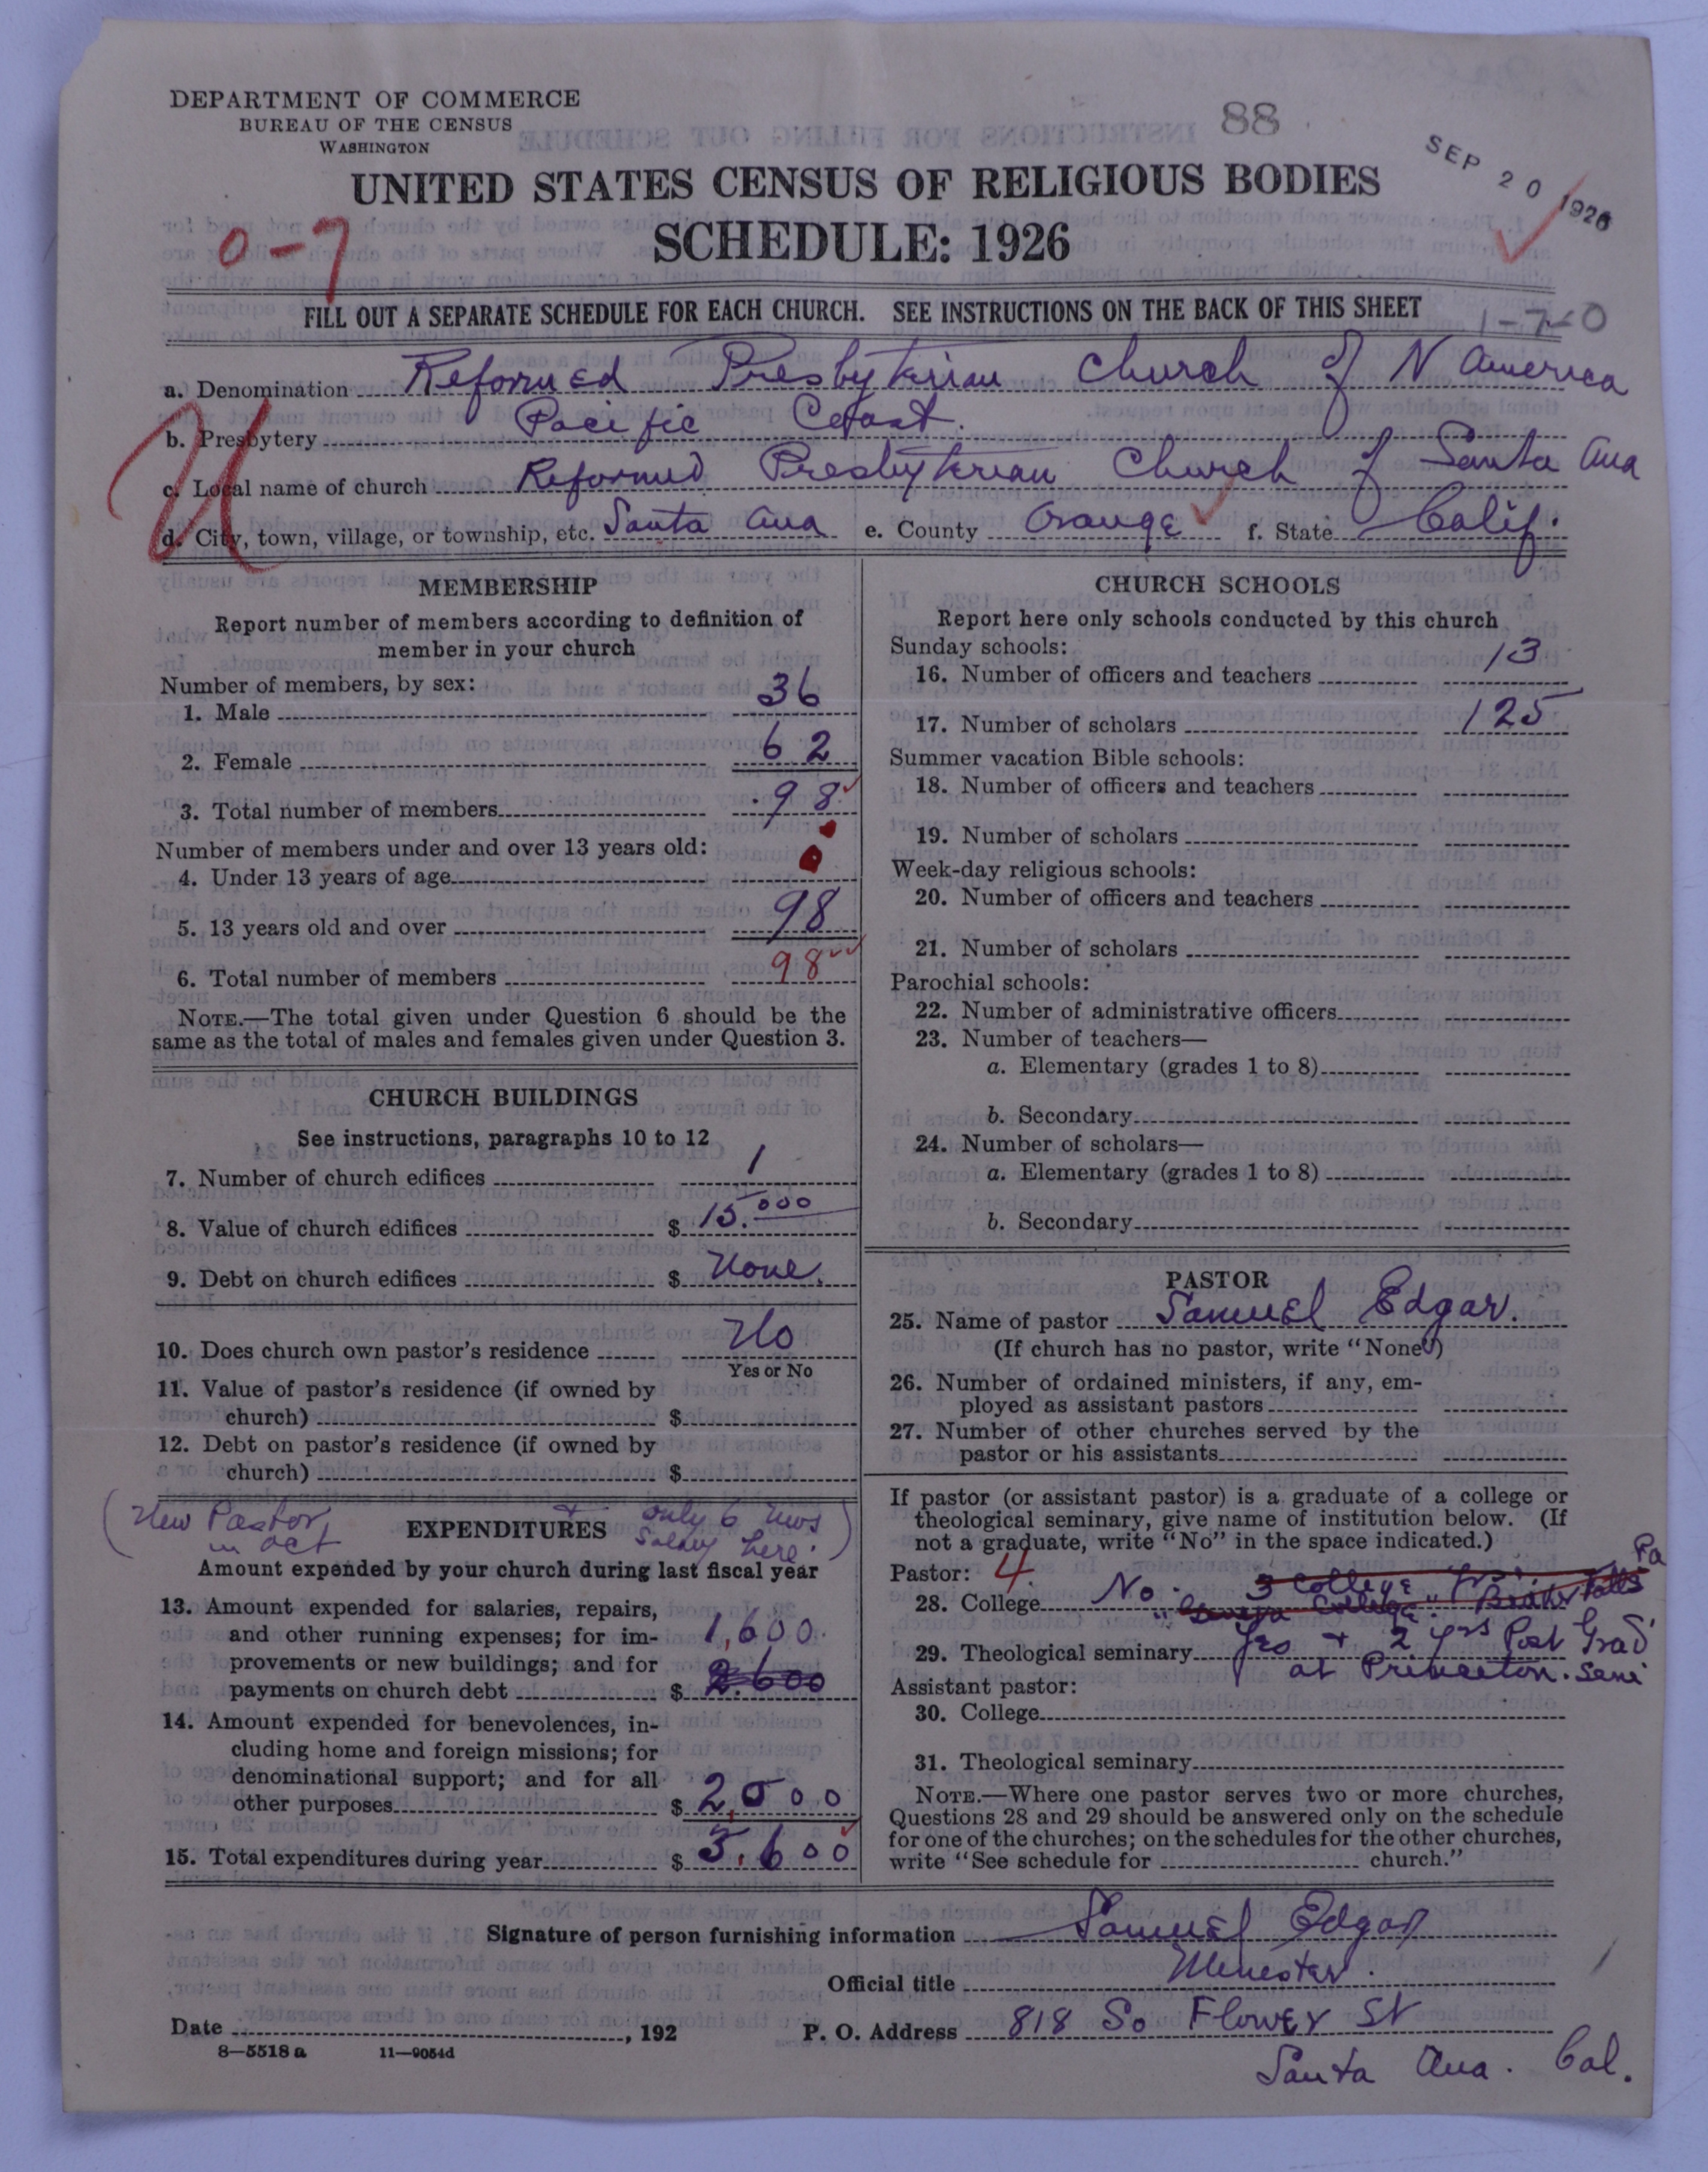 DEPARTMENT OF COMMERCE
BUREAU OF THE CENSUS
WASHINGTON
88
SEP 20 1926
UNITED STATES CENSUS OF RELIGIOUS BODIES
SCHEDULE: 1926
0-7
FILL OUT A SEPARATE SCHEDULE FOR EACH CHURCH. SEE INSTRUCTIONS ON THE BACK OF THIS SHEET
1-7-0
a. Denomination Reformed Presbyterian Church of N America
b. Presbytery Pacific Coast.
c. Local name of church Reformed Presbyterian Church of Santa Ana
d. City, town, village, or township, etc. Santa Ana e. County Orange f. State Calif.
MEMBERSHIP
Report number of members according to definition of
member in your church
Number of members, by sex:
1. Male 36
2. Female 62
3. Total number of members 98
Number of members under and over 13 years old:
4. Under 13 years of age
5. 13 years old and over 98
6. Total number of members 98
NOTE.—The total given under Question 6 should be the
same as the total of males and females given under Question 3.
CHURCH BUILDINGS
See instructions, paragraphs 10 to 12
7. Number of church edifices 1
8. Value of church edifices $ 15.000
9. Debt on church edifices $ None.
10. Does church own pastor's residence No
Yes or No
11. Value of pastor's residence (if owned by
church) $
12. Debt on pastor's residence (if owned by
church) $
(New Pastor, + only 6 mos
in Oct Salary here.)
EXPENDITURES
Amount expended by your church during last fiscal year
13. Amount expended for salaries, repairs,
and other running expenses; for im-
provements or new buildings; and for
payments on church debt $ 1,600.
2.600
14. Amount expended for benevolences, in-
cluding home and foreign missions; for
denominational support; and for all
other purposes $ 2,000
15. Total expenditures during year $ 3.600
CHURCH SCHOOLS
Report here only schools conducted by this church
Sunday schools:
16. Number of officers and teachers 13
17. Number of scholars 125
Summer vacation Bible schools:
18. Number of officers and teachers
19. Number of scholars
Week-day religious schools:
20. Number of officers and teachers
21. Number of scholars
Parochial schools:
22. Number of administrative officers
23. Number of teachers—
a. Elementary (grades 1 to 8)
b. Secondary
24. Number of scholars—
a. Elementary (grades 1 to 8)
b. Secondary
PASTOR
25. Name of pastor Samuel Edgar.
(If church has no pastor, write "None")
26. Number of ordained ministers, if any, em-
ployed as assistant pastors
27. Number of other churches served by the
pastor or his assistants
If pastor (or assistant pastor) is a graduate of a college or
theological seminary, give name of institution below. (If
not a graduate, write "No" in the space indicated.)
Pastor: 4
28. College No. 3 College yrs. Pa
"Geneva College". Beaver Falls
29. Theological seminary Yes + 2 yrs Post Grad
at Princeton. Semi
Assistant pastor:
30. College
31. Theological seminary
NOTE.—Where one pastor serves two or more churches,
Questions 28 and 29 should be answered only on the schedule
for one of the churches; on the schedules for the other churches,
write "See schedule for church."
Signature of person furnishing information Samuel Edgar
Official title Minester.
Date , 192
P. O. Address 818 So Flower St
Santa Ana. Cal.
8—5518 a 11—9054d